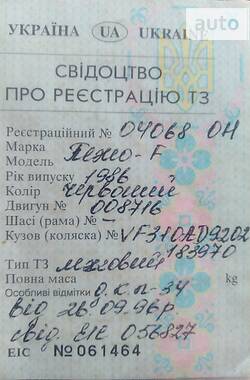 auto
УКРАЇНА UA UKRAINE
СВІДОЦТВО
ПРО РЕЄСТРАЦІЮ ТЗ
Реєстраційний № 04068 ОН
Марка
Модель Пежо-F
Рік випуску 1986
Колір червоний
Двигун № 008716
Шасі (рама) № —
Кузов (коляска) № VF310A09202
183970
Тип ТЗ легковий
Повна маса kg
Особливі відмітки О.К.П-34
від 26.09.96р
свід. ЕІС 056827
ЕІС № 061464